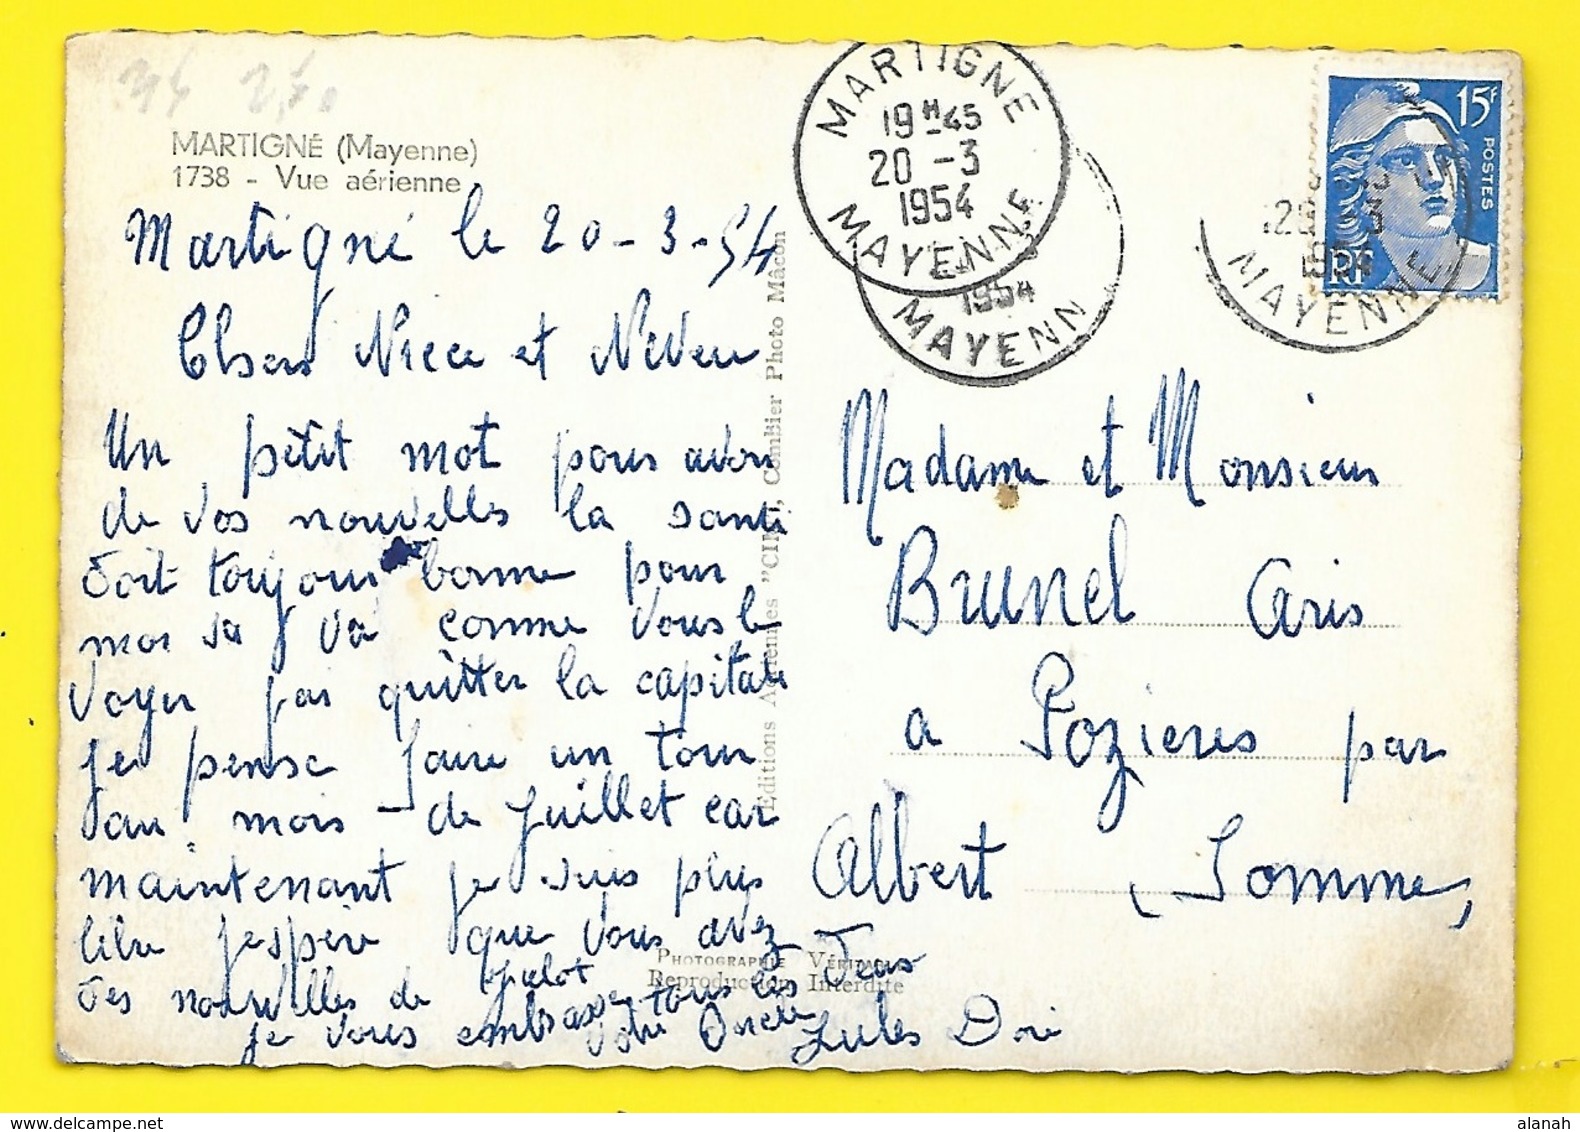 MARTIGNÉ (Mayenne)
1738 - Vue aérienne
Martigné le 20-3-54
Chers Niece et Neveu
Un petit mot pour avoir
de vos nouvelles la santé
soit toujour bonne pour
moi sa va comme vous le
voyer pas quitter la capitale
je pense faire un tour
au mois de juillet car
maintenant je suis plus
libre j'espère que vous avez
des nouvelles de
je vous embrasse tous les Deux
votre Oncle Jules
Editions Aériennes "CIM", Combier Photo Mâcon
Photographie Véritable
Reproduction Interdite
MARTIGNE
19H45
20 -3
1954
MAYENNE
1954
MAYENN
15F
POSTES
RF
20 3
1954
MAYENNE
Madame et Monsieur
BRUNEL Aris
a Pozieres par
Albert (Somme)
alanah